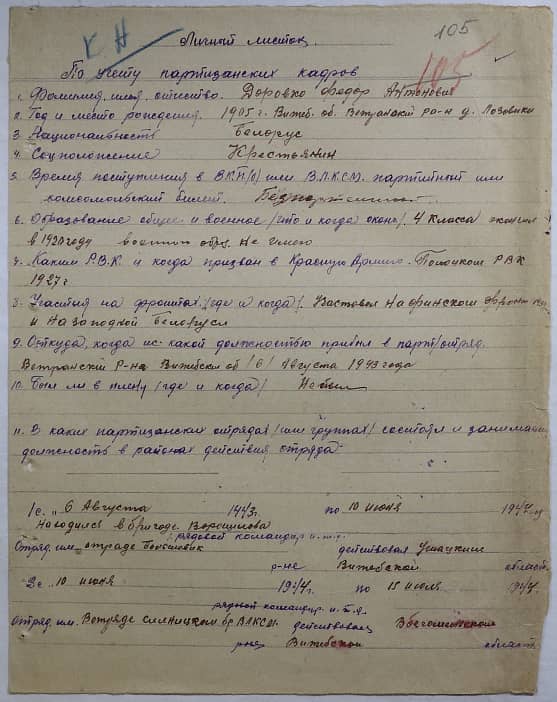 105
К Н
Личный листок
105
По учету партизанских кадров
1. Фамилия, имя, отчество. Доровко Федор Антонович
2. Год и место рождения. 1905 г. Витеб. об. Ветринский ра-н д. Лозовики
3. Национальность Белорус
4. Соц положение Крестьянин
5. Время поступления в ВКП(б) или ВЛКСМ. партийный или
комсомольский билет. Безпартийный
6. Образование общее и военное /что и когда оконч/. 4 класса
в 1920 году военного обр. не имею
7. Каким Р.В.К. и когда призван в Красную Армию. Полоцком РВК
1927 г
8. Участия на фронтах /где и когда/. Участвовал На финском фронте
и На западной Белорусии
9. Откуда, когда и с какой должностью прибыл в парт/отряд.
Ветринский Р-на Витебской об /6/ Августа 1943 года
10. Был ли в плену /где и когда/ Не был
11. В каких партизанских отрядах /или группах/ состоял и занимаем
должность в районах действия отряда
1 с. "6 Августа 1943 г. по 10 июня 1944 г.
Находился в бригаде Ворошилова
рядовой командир и.т.д.
Отряд. им. отраде Большевик действовал Ушацким
р-не Витебской област.
2 с 10 июня 1944 г. по 15 июля 1944 г.
рядовой командир и.т.д.
Отряд. им. Вотряде бр ВЛКСМ. действовал Вбегомльском
р-не Витебской област.